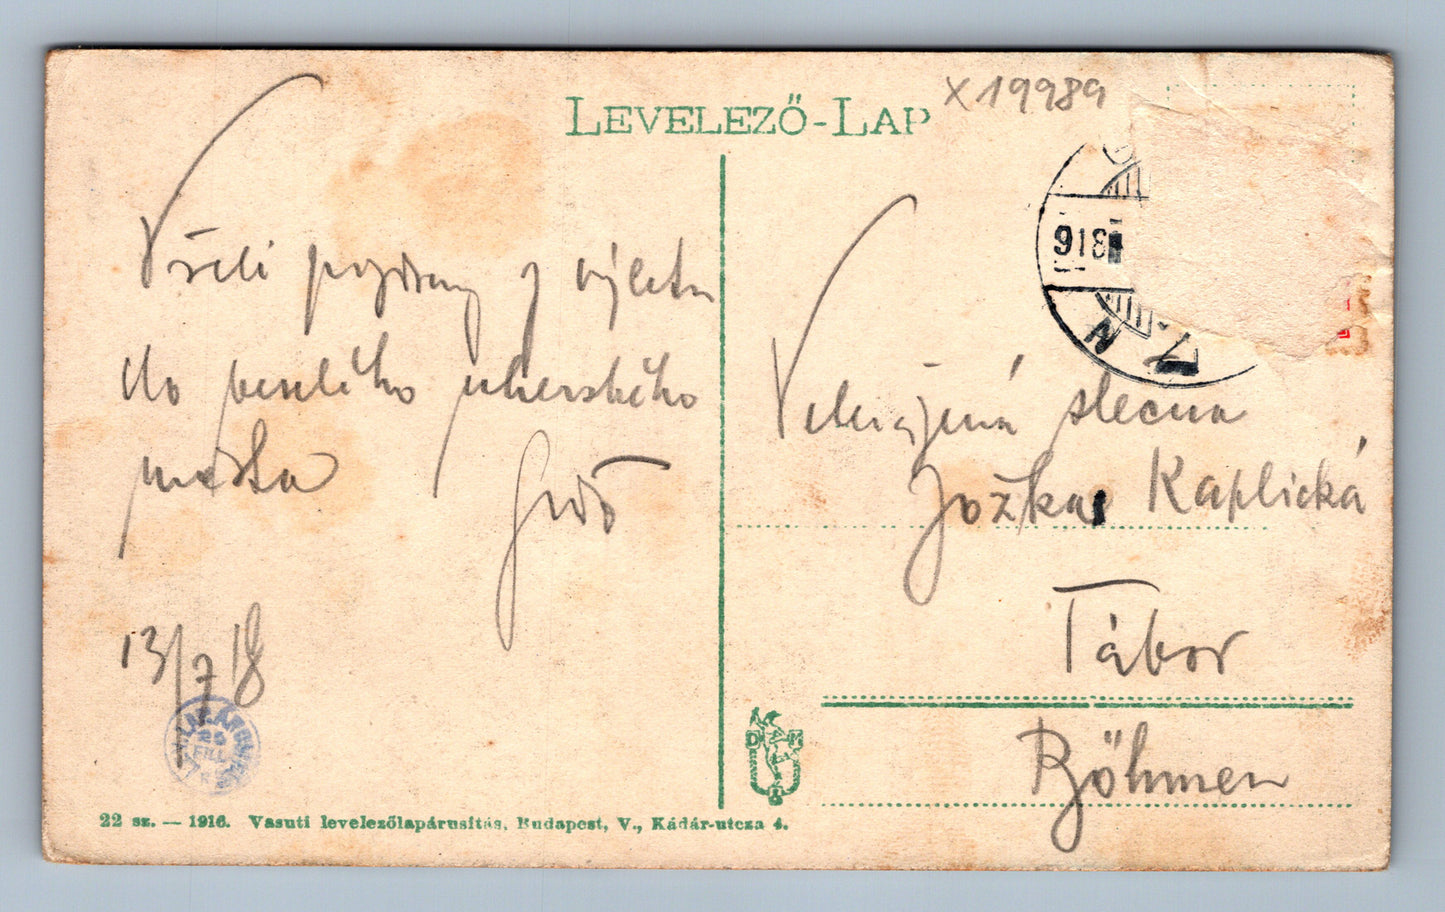 LEVELEZŐ-LAP
X 19989
918
N
Všeli pozdrav z výletu
do veselého uherského
města
13/7 18
Velevážená slečna
Jožka Kaplická
Tábor
Böhmen
D M
25
FILL
22 sz. — 1916. Vasuti levelezőlapárusitás, Budapest, V., Kádár-utcza 4.